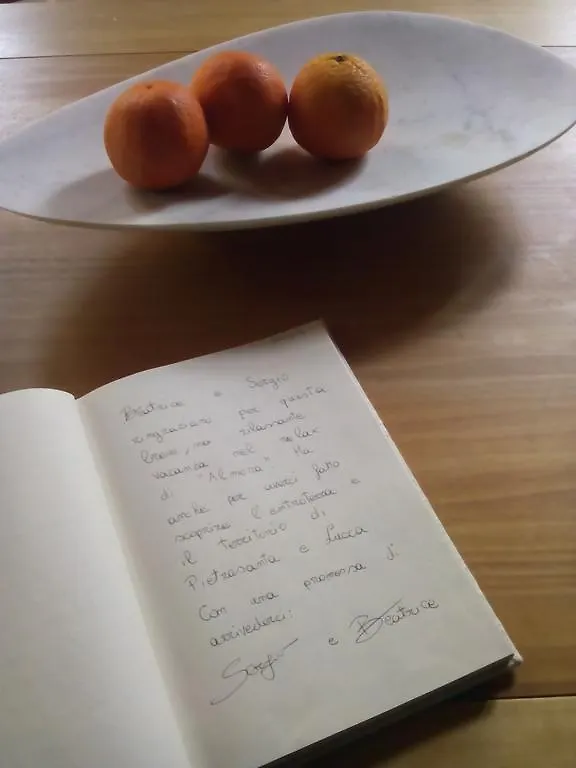 Beatrice e Sergio
ringraziano per questa
breve, ma rilassante
vacanza nel relax
di "Almora" Ma
anche per averci fatto
scoprire l'entroterra e
il territorio di
Pietrasanta e Lucca
Con una promessa di
arrivederci:
Sergio e Beatrice